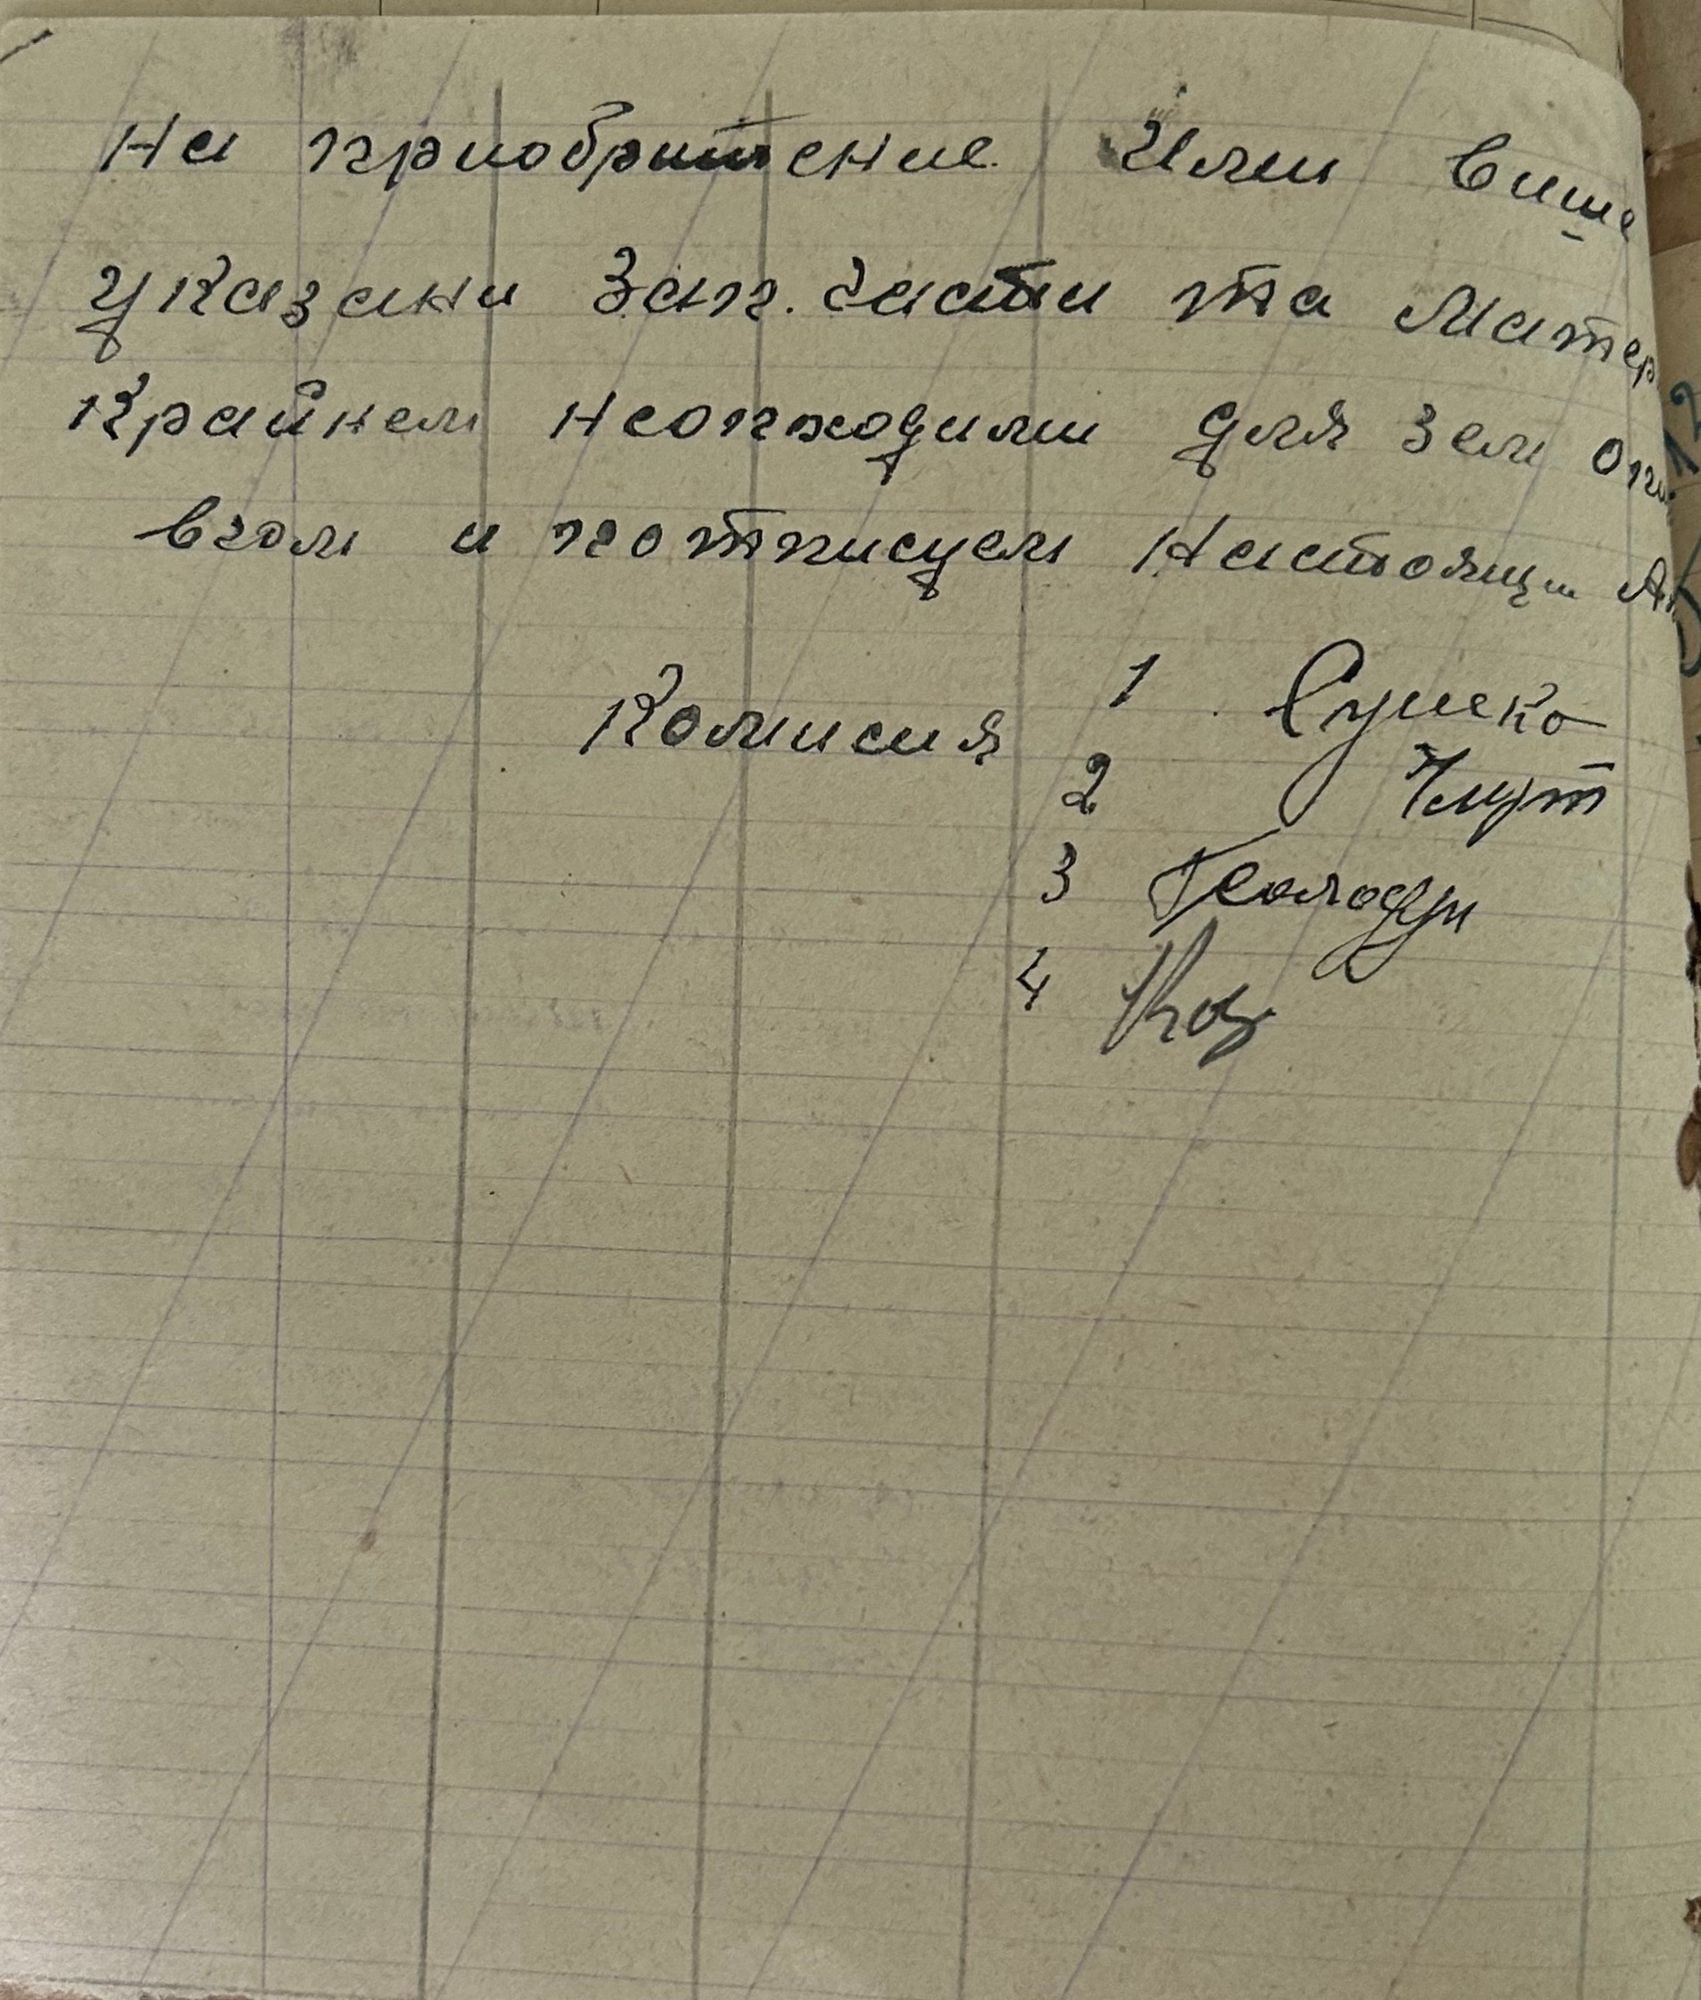 на приобритение Ими више
указани Зап. Части та Матер
Крайнем неопходими для Зем
вчом и потписуем Настоящ
Комисия 1 Сушко
2
3 Колодун
4 Коз